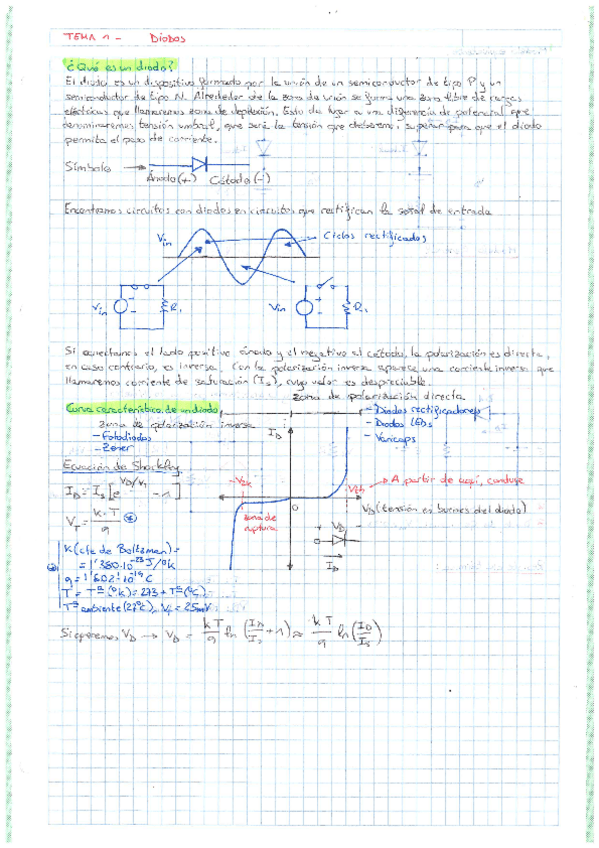 TEMA 1 - Diodos
¿Qué es un diodo?
El diodo es un dispositivo formado por la unión de un semiconductor de tipo P y un
semiconductor de tipo N. Alrededor de la zona de unión se forma una zona libre de cargas
eléctricas que llamaremos zona de depleción. Esto da lugar a una diferencia de potencial que
denominaremos tensión umbral, que será la tensión que debemos superar para que el diodo
permita el paso de corriente.
Símbolo
Ánodo (+) Cátodo (-)
Encontramos circuitos con diodos en circuitos que rectifican la señal de entrada
Vin
Ciclos rectificados
Vin + - R1
Vin + - R1
Si conectamos el lado positivo ánodo y el negativo al cátodo, la polarización es directa,
en caso contrario, es inversa. Con la polarización inversa aparece una corriente inversa que
llamaremos corriente de saturación (Is), cuyo valor es despreciable.
zona de polarización directa
Curva característica de un diodo
- Diodos rectificadores
- Diodos LEDs
- Varicaps
zona de polarización inversa
- Fotodiodos
- Zener
ID
Ecuación de Shockley
ID = Is [e^(VD/VT) - 1]
VT = k·T/q
-Vzk
zona de
ruptura
0
Vth
A partir de aquí, conduce
VD (tensión en bornes del diodo)
+ VD -
ID
K (cte de Boltzman) =
= 1'380·10^-23 J/ºK
q = 1'602·10^-19 C
T = Tª (ºK) = 273 + Tª (ºC)
Tª ambiente (27ºC), VT = 25mV
Si operamos, VD → VD = kT/q ln (ID/Is + 1) ≈ kT/q ln (ID/Is)